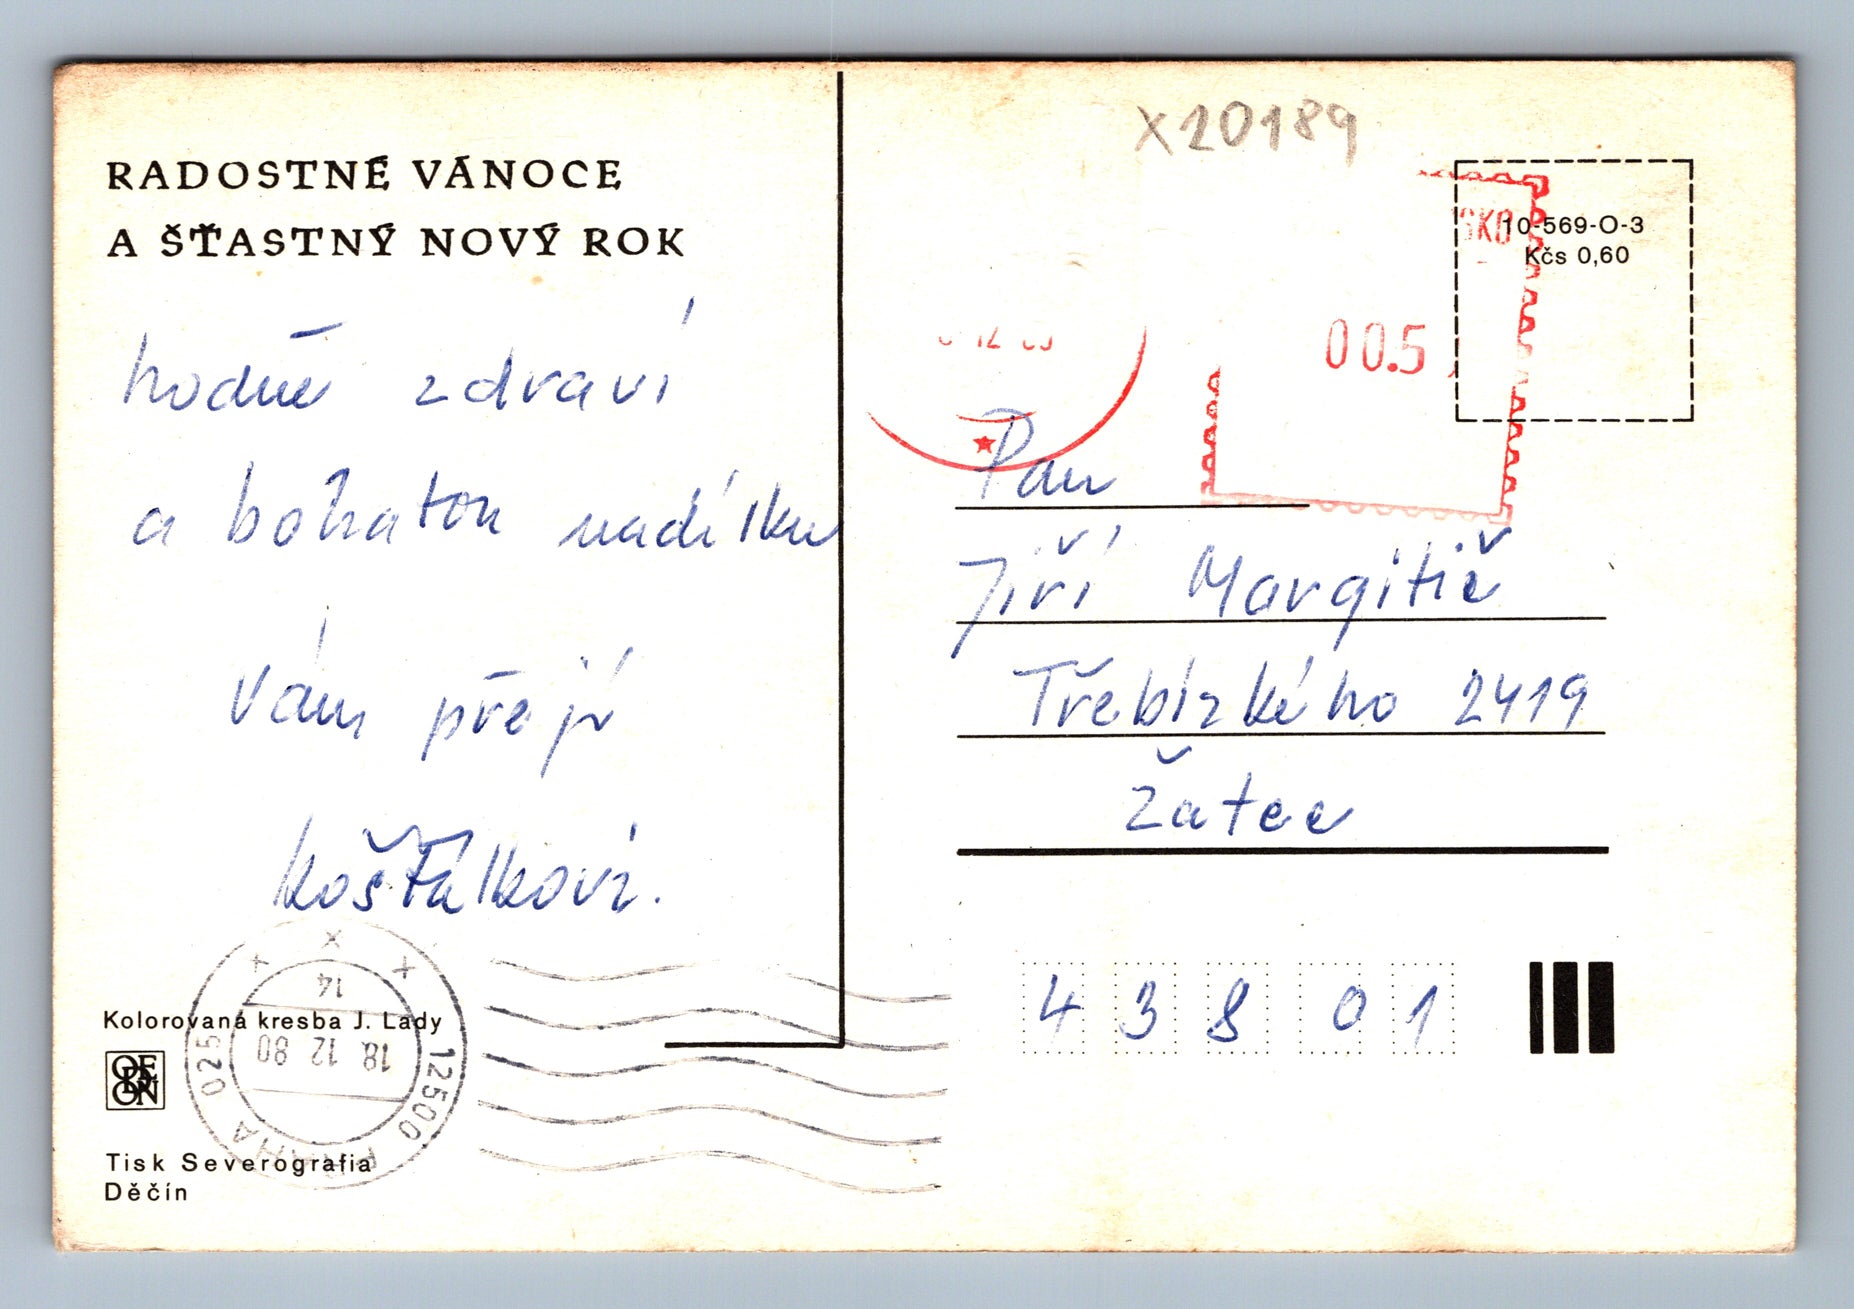 RADOSTNÉ VÁNOCE
A ŠŤASTNÝ NOVÝ ROK
hodně zdraví
a bohatou nadílku
Vám přejí
Košťálkovi.
Kolorovaná kresba J. Lady
ODEON
Tisk Severografia
Děčín
14
18. 12 80
12500 PRAHA 025
X20189
10-569-O-3
Kčs 0,60
SKO
00.5
Pan
Jiří Margitič
Třebízkého 2419
Žatec
438 01